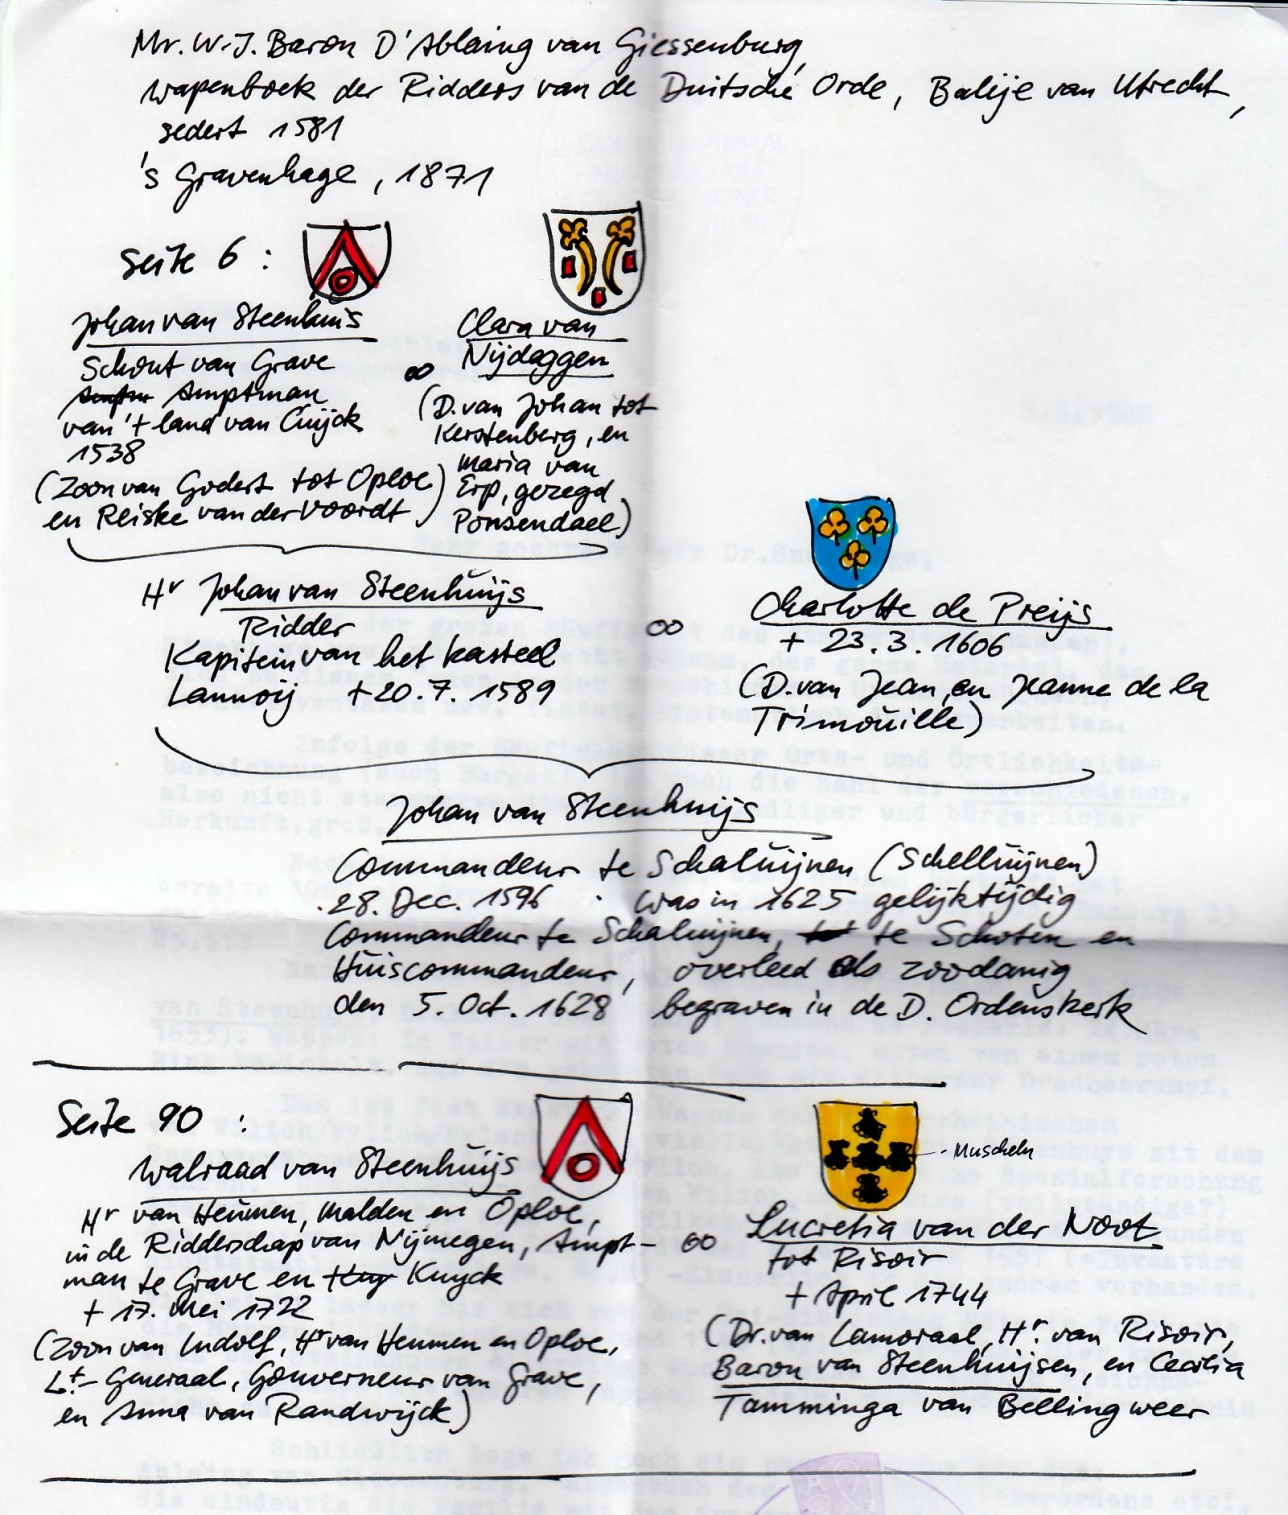 Mr. W.J. Baron D'Ablaing van Giessenburg,
wapenboek der Ridders van de Duitsche Orde, Balije van Utrecht,
sedert 1581
's Gravenhage, 1871
Seite 6 :
Johan van Steenhuis
Schout van Grave
Amptman
van 't land van Cuijck
1538
(Zoon van Godert tot Oploe)
en Reiske van der Voordt)
∞
Clara van
Nijdaggen
(D. van Johan tot
Kerstenberg, en
Maria van
Erp, gezegd
Ponsendael)
Hr Johan van Steenhuijs
Ridder
Kapitein van het kasteel
Lannoij +20.7.1589
∞
Charlotte de Preijs
+ 23.3.1606
(D. van Jean, en Jeanne de la
Trimouille)
Johan van Steenhuijs
Commandeur te Schaluijnen (Schelluijnen)
28. Dec. 1596 . Was in 1625 gelijktijdig
Commandeur te Schaluijnen, te Schoten en
Huiscommandeur, overleed als zoodanig
den 5. Oct. 1628 begraven in de D. Ordenskerk
Seite 90 :
Walraad van Steenhuijs
Hr van Heumen, Malden en Oploe,
in de Ridderschap van Nijmegen, Ampt-
man te Grave en Kuyck
+ 17. Mei 1722
(Zoon van Ludolf, Hr van Heumen en Oploe,
Lt- Generaal, Gouverneur van Grave,
en Anna van Randwijck)
∞
- Muscheln
Lucretia van der Noot
tot Risoir
+ April 1744
(Dr. van Lamoraal, Hr. van Risoir,
Baron van Steenhuijsen, en Cecilia
Tamminga van Bellingweer